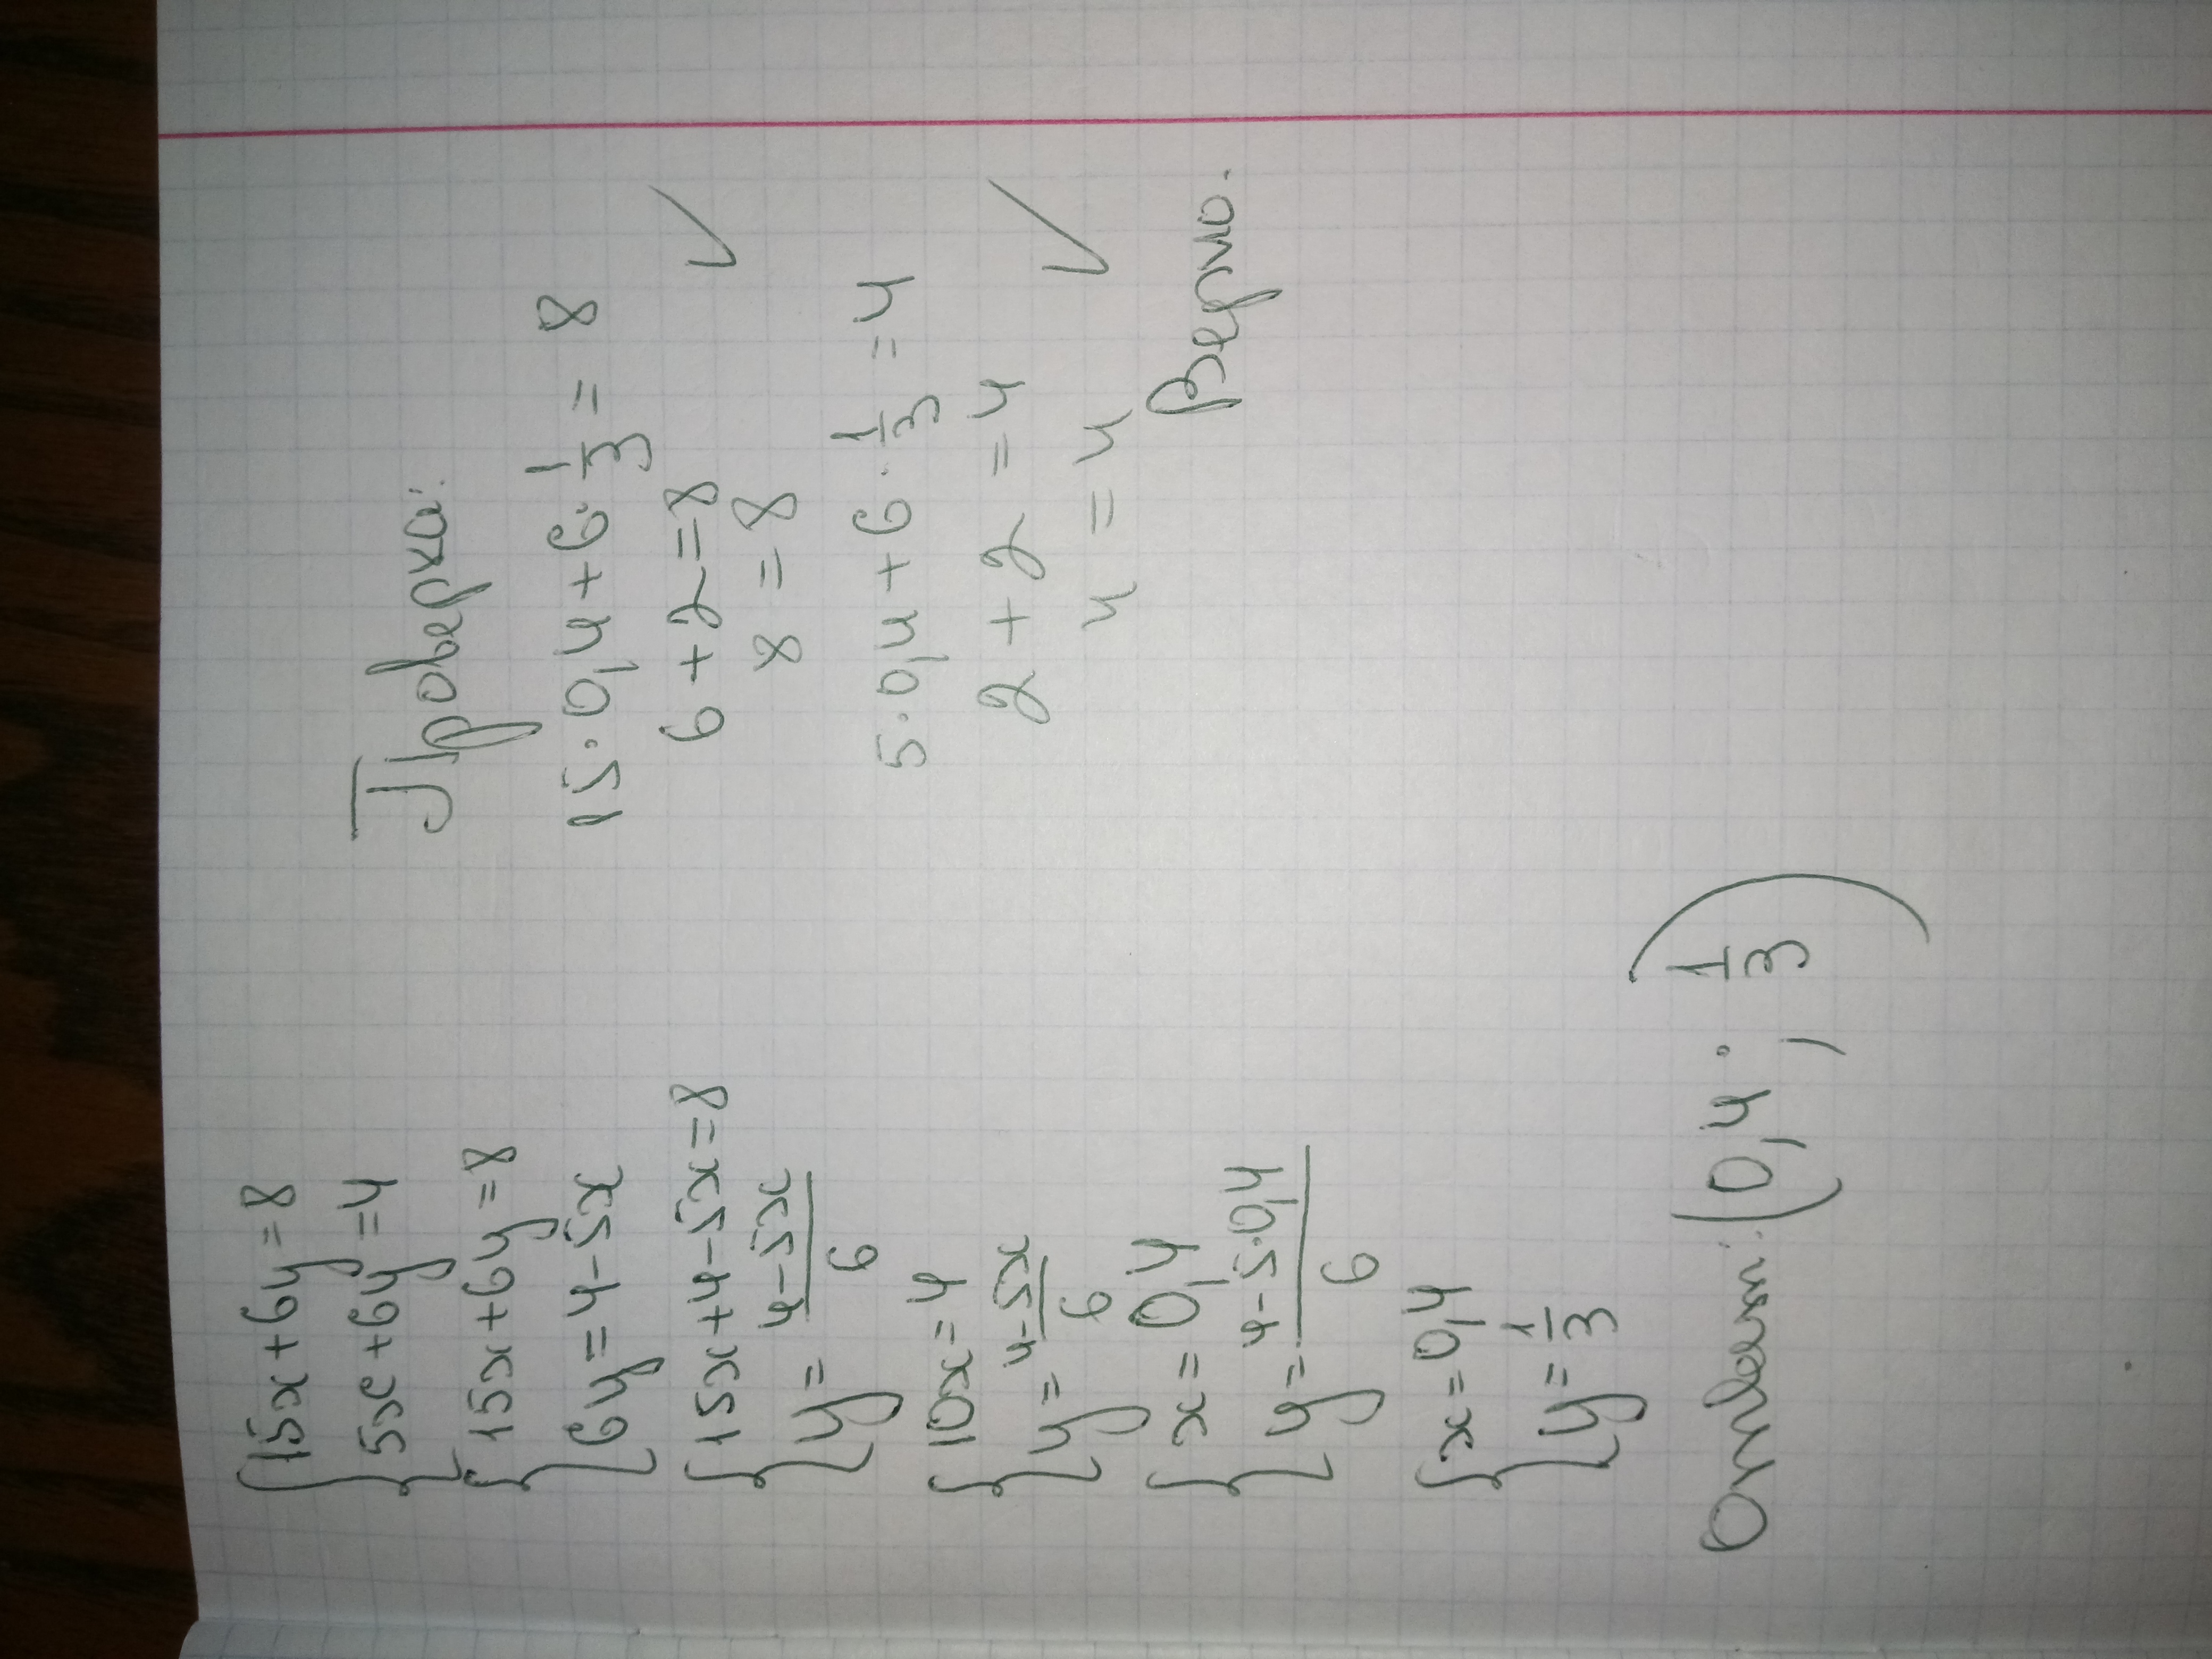 {15x+6y=8
5x+6y=4
{15x+6y=8
6y=4-5x
{15x+4-5x=8
y=\frac{4-5x}{6}
{10x=4
y=\frac{4-5x}{6}
{x=0,4
y=\frac{4-5·0,4}{6}
{x=0,4
y=\frac{1}{3}
Ответ: (0,4; \frac{1}{3})
Проверка:
15·0,4+6·\frac{1}{3}=8
6+2=8 ✓
8=8
5·0,4+6·\frac{1}{3}=4
2+2=4 ✓
4=4
Верно.